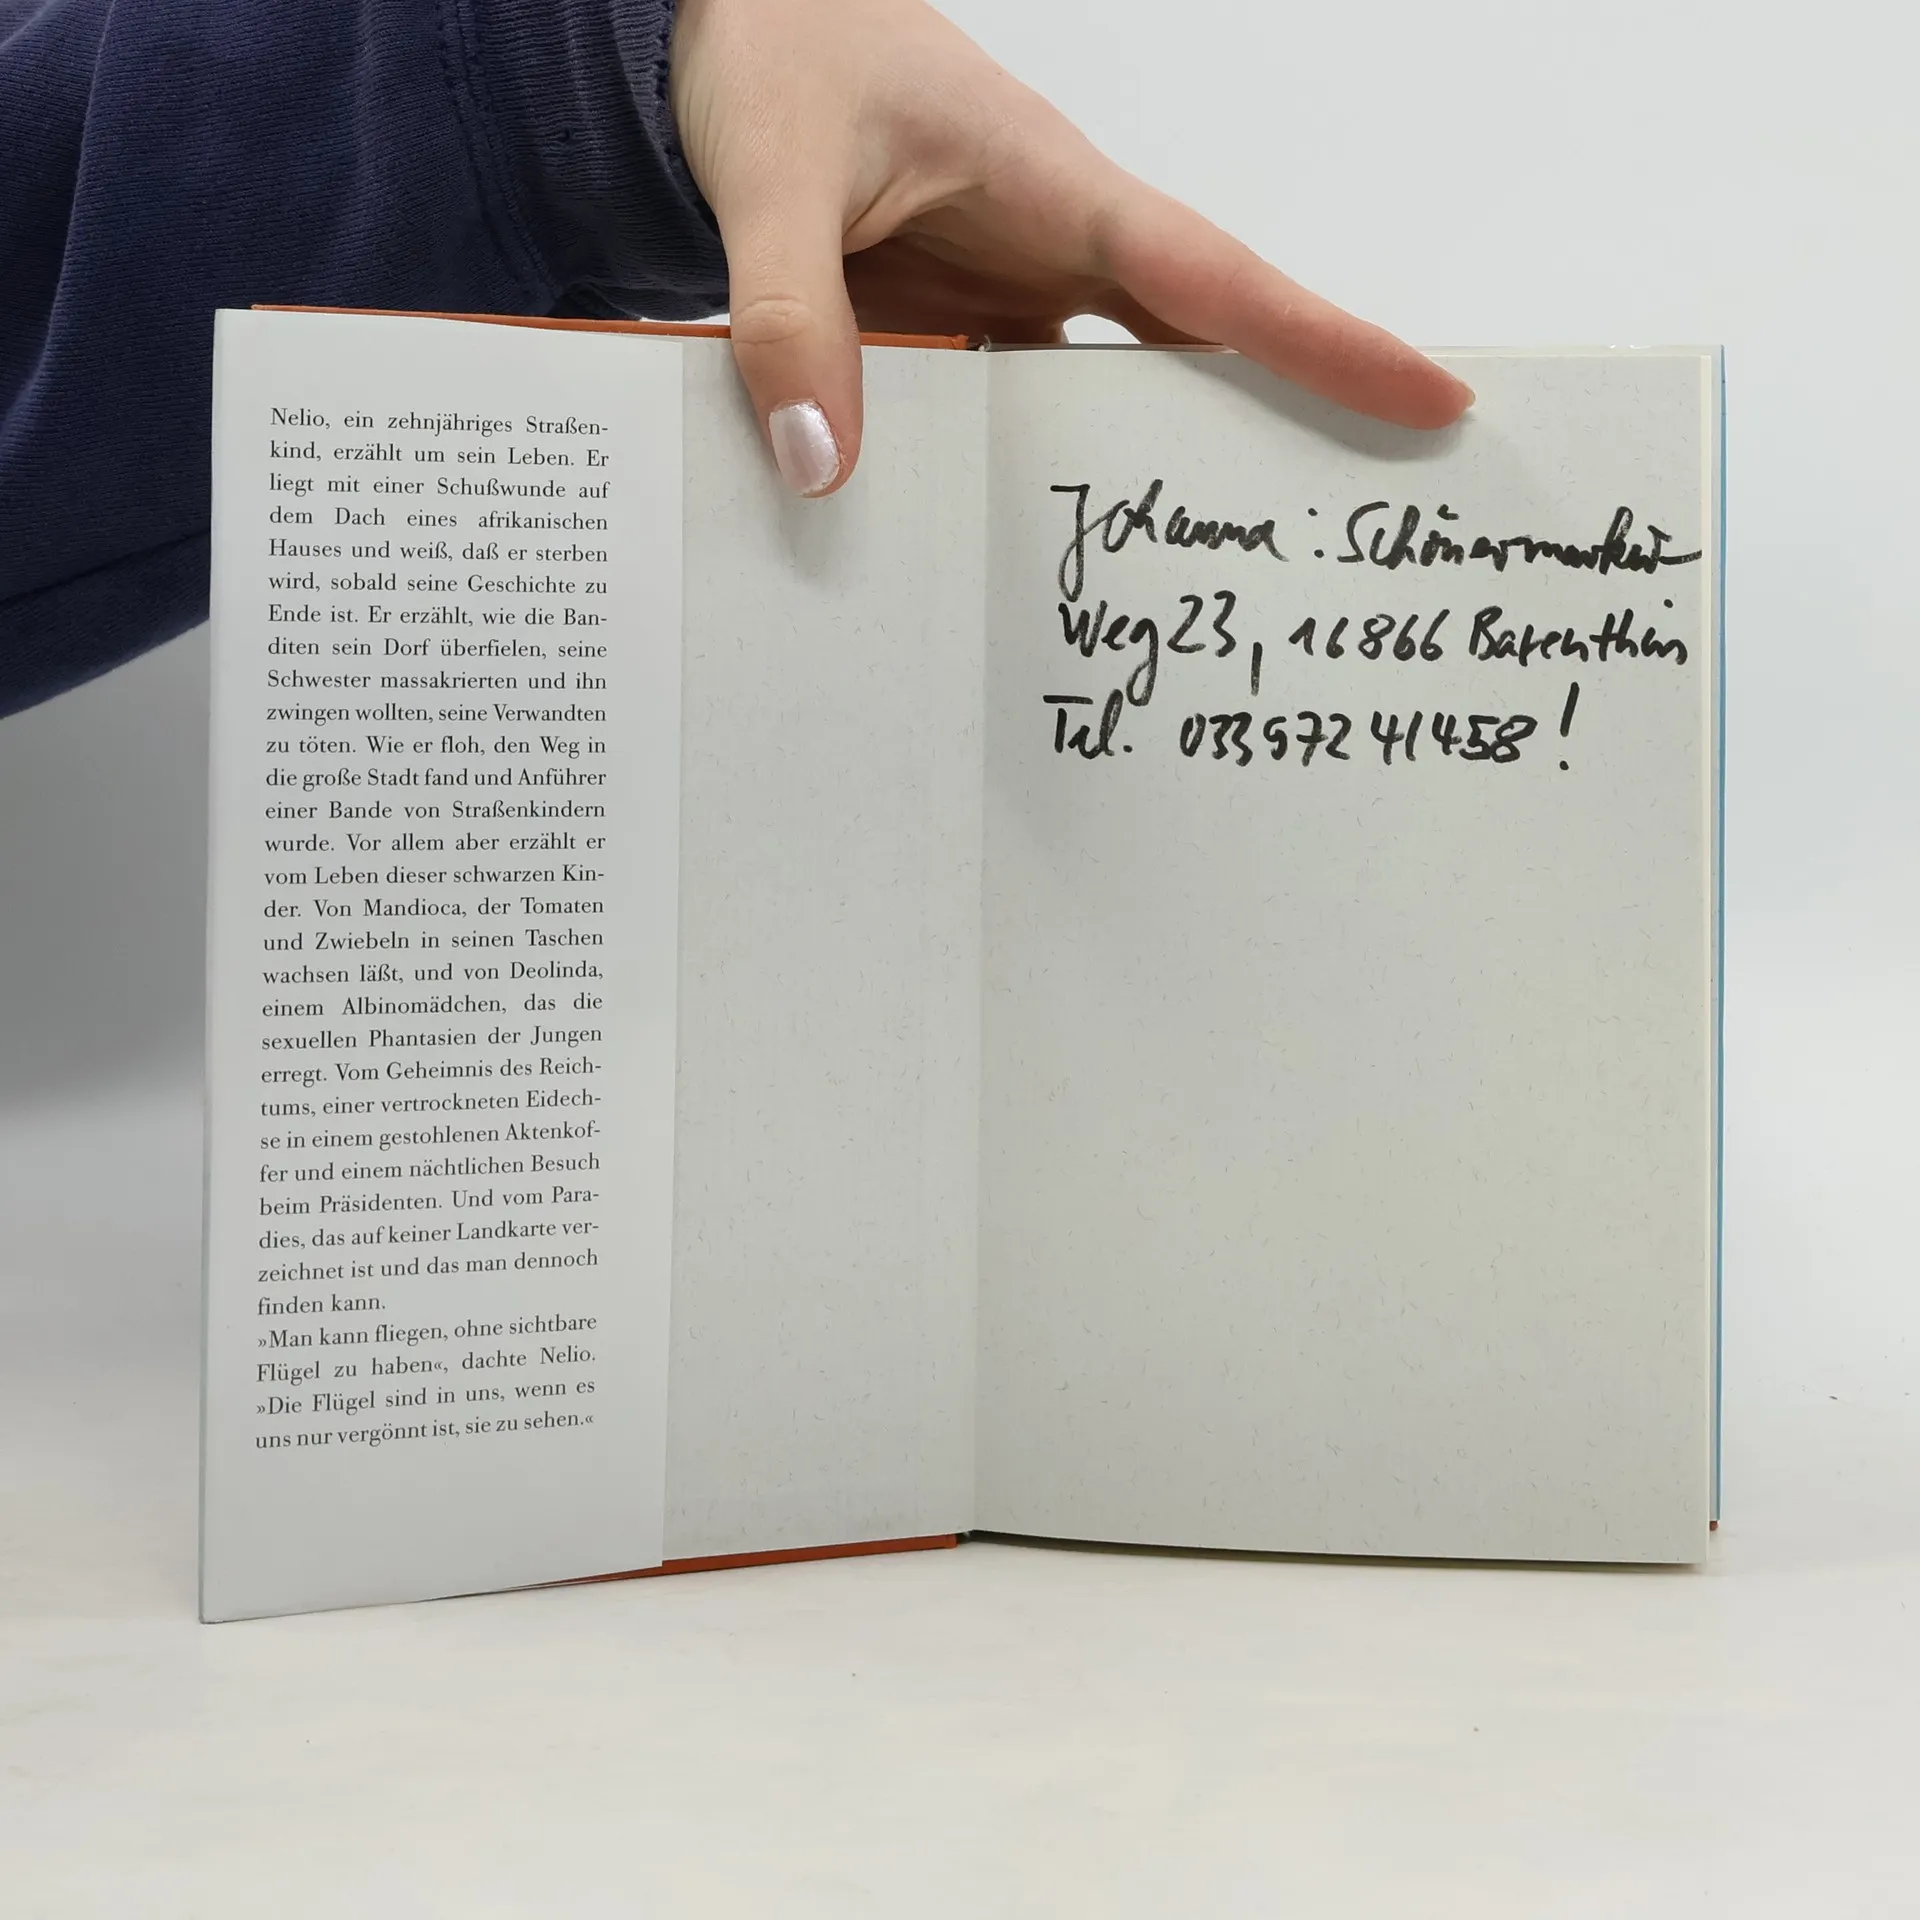 Nelio, ein zehnjähriges Straßen-
kind, erzählt um sein Leben. Er
liegt mit einer Schußwunde auf
dem Dach eines afrikanischen
Hauses und weiß, daß er sterben
wird, sobald seine Geschichte zu
Ende ist. Er erzählt, wie die Ban-
diten sein Dorf überfielen, seine
Schwester massakrierten und ihn
zwingen wollten, seine Verwandten
zu töten. Wie er floh, den Weg in
die große Stadt fand und Anführer
einer Bande von Straßenkindern
wurde. Vor allem aber erzählt er
vom Leben dieser schwarzen Kin-
der. Von Mandioca, der Tomaten
und Zwiebeln in seinen Taschen
wachsen läßt, und von Deolinda,
einem Albinomädchen, das die
sexuellen Phantasien der Jungen
erregt. Vom Geheimnis des Reich-
tums, einer vertrockneten Eidech-
se in einem gestohlenen Aktenkof-
fer und einem nächtlichen Besuch
beim Präsidenten. Und vom Para-
dies, das auf keiner Landkarte ver-
zeichnet ist und das man dennoch
finden kann.
»Man kann fliegen, ohne sichtbare
Flügel zu haben«, dachte Nelio.
»Die Flügel sind in uns, wenn es
uns nur vergönnt ist, sie zu sehen.«
Johanna:
Weg 23, 16866 Barenthin
Tel. 033972 41458!